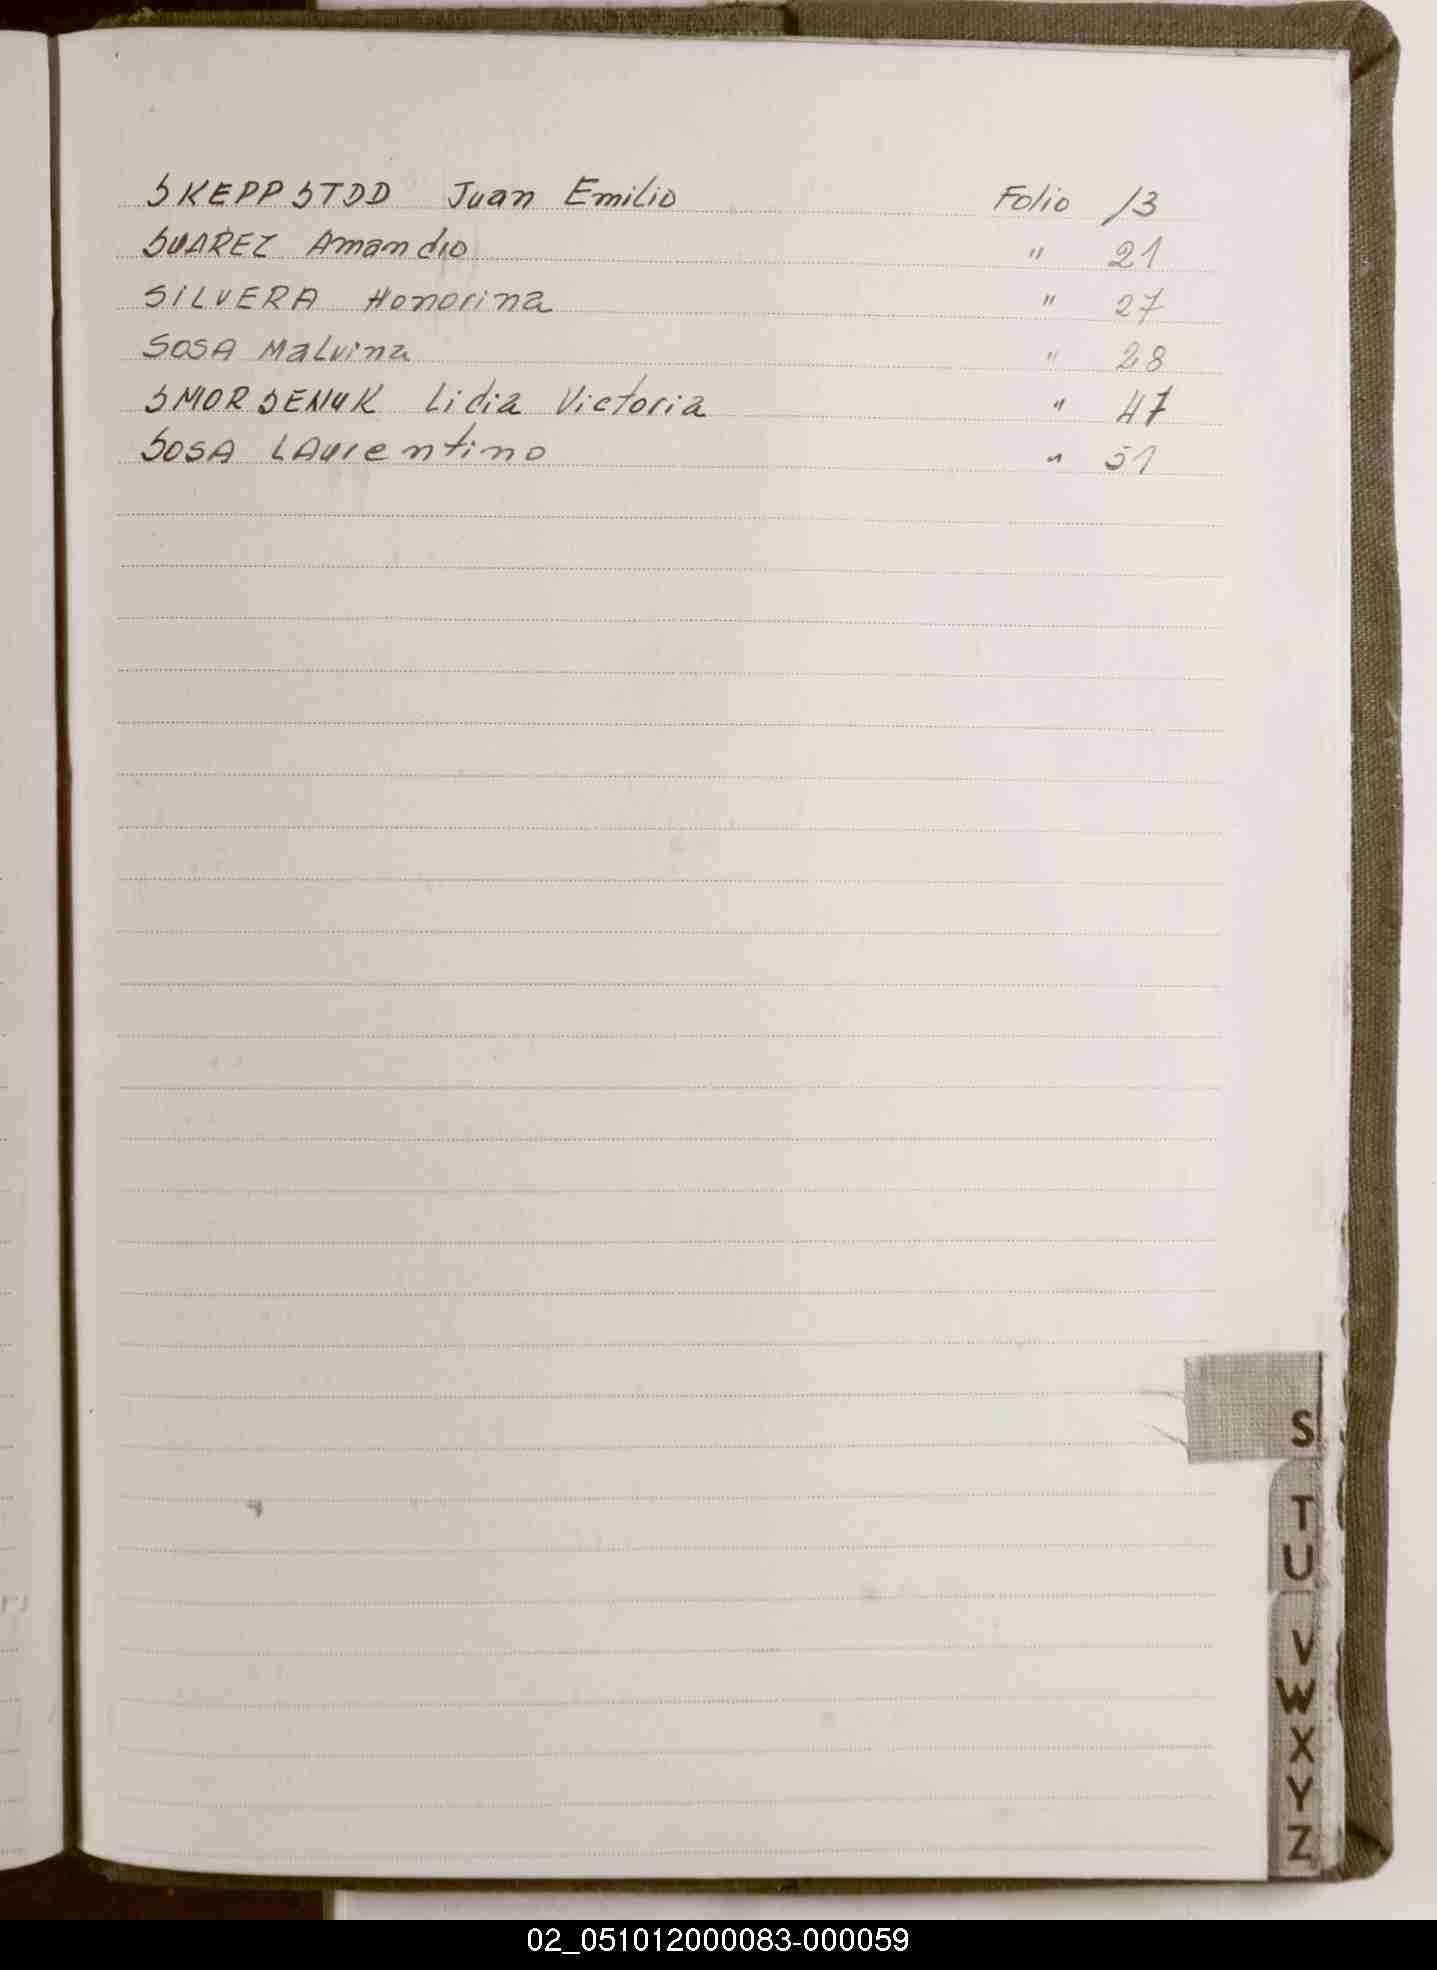 SKEPPSTDD Juan Emilio Folio 13
SUAREZ Amandio " 21
SILVERA Honorina " 27
SOSA Malvina " 28
SMORSENUK Lidia Victoria " 47
SOSA LAurentino " 51
S
T
U
V
W
X
Y
Z
02_051012000083-000059